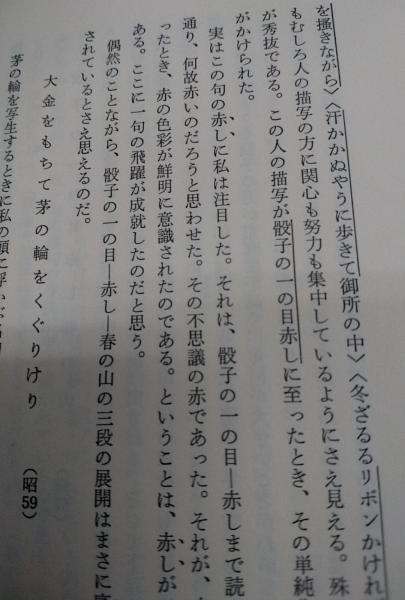 を掻きながら〉〈汗かかぬやうに歩きて御所の中〉〈冬ざるるリボンかけれ
もむしろ人の描写の方に関心も努力も集中しているようにさえ見える。殊
が秀抜である。この人の描写が骰子の一の目赤しに至ったとき、その単純
がかけられた。
実はこの句の赤しに私は注目した。それは、骰子の一の目―赤しまで読
通り、何故赤いのだろうと思わせた。その不思議の赤であった。それが、
ったとき、赤の色彩が鮮明に意識されたのである。ということは、赤しが
ある。ここに一句の飛躍が成就したのだと思う。
偶然のことながら、骰子の一の目―赤し―春の山の三段の展開はまさに
されているとさえ思えるのだ。
大金をもちて茅の輪をくぐりけり
(昭59)
茅の輪を写生するときに私の頭に浮かぶ